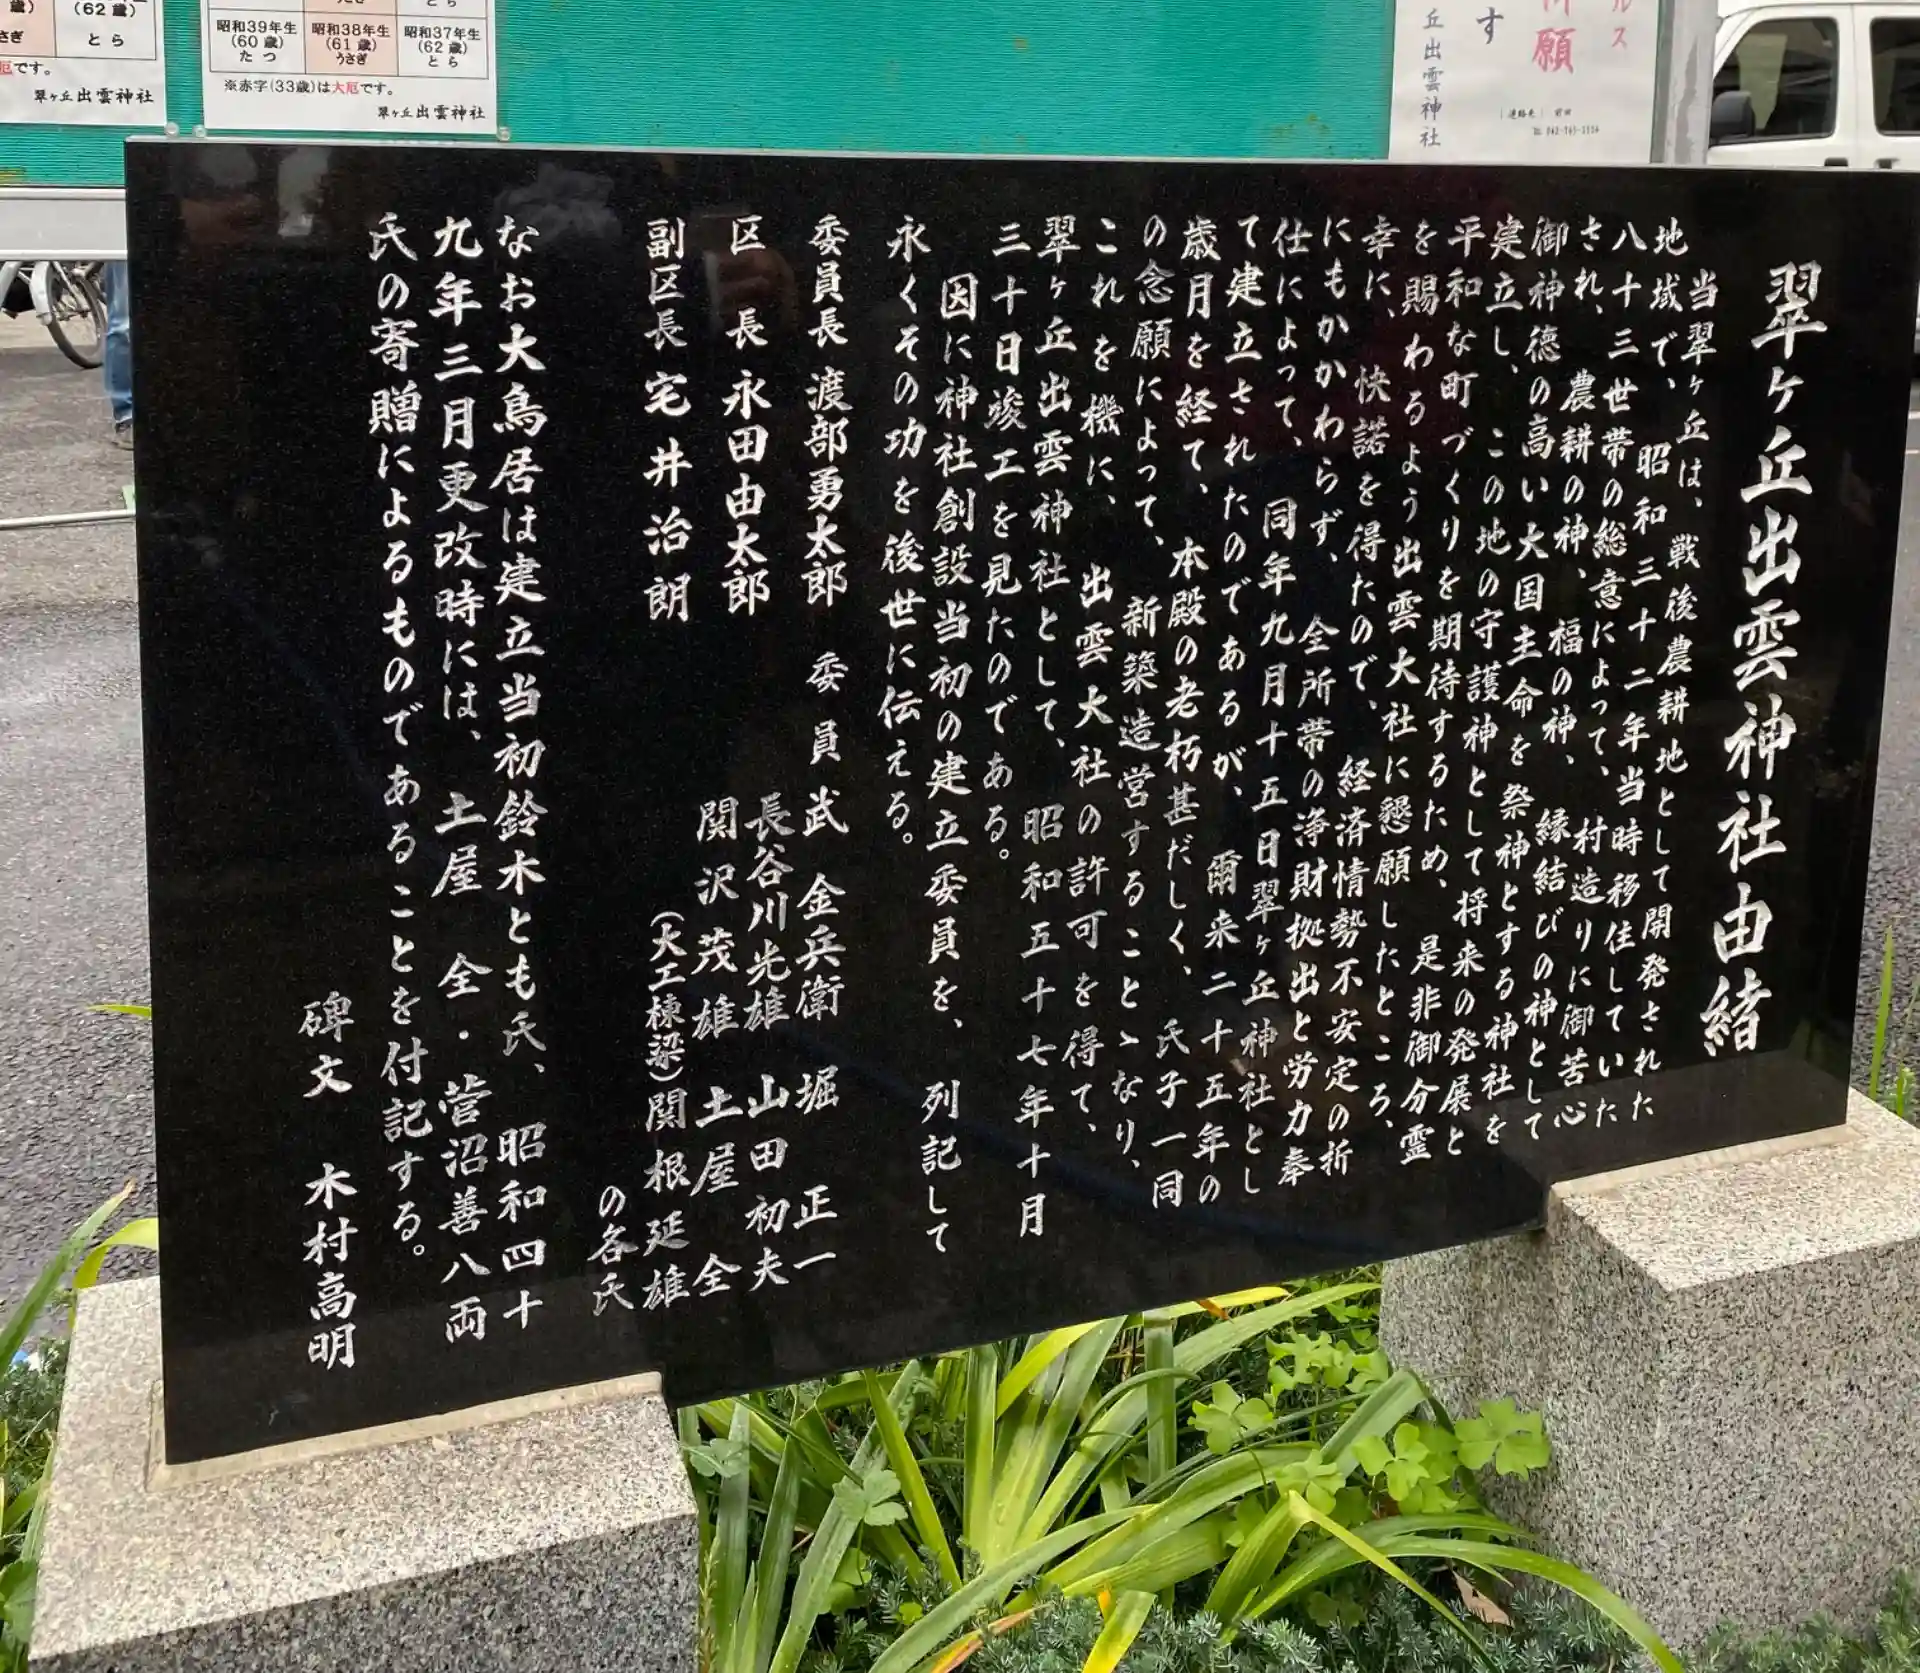 歳)
(62歳)
さぎ
とら
厄です。
翠ヶ丘出雲神社
うさぎ
とら
昭和39年生
(60歳)
たつ
昭和38年生
(61歳)
うさぎ
昭和37年生
(62歳)
とら
※赤字(33歳)は大厄です。
翠ヶ丘出雲神社
ルス
願
す
丘出雲神社
翠ヶ丘出雲神社由緒
当翠ヶ丘は、戦後農耕地として開発された
地域で、昭和三十二年当時移住していた
八十三世帯の総意によって、村造りに御苦心
され、農耕の神、福の神、縁結びの神として
御神徳の高い大国主命を祭神とする神社を
建立し、この地の守護神として将来の発展と
平和な町づくりを期待するため、是非御分霊
を賜わるよう出雲大社に懇願したところ、
幸に、快諾を得たので、経済情勢不安定の折
にもかかわらず、全所帯の浄財拠出と労力奉
仕によって、同年九月十五日翠ヶ丘神社とし
て建立されたのであるが、爾来二十五年の
歳月を経て、本殿の老朽甚だしく、氏子一同
の念願によって、新築造営することゝなり、
これを機に、出雲大社の許可を得て、
翠ヶ丘出雲神社として、昭和五十七年十月
三十日竣工を見たのである。
因に神社創設当初の建立委員を、列記して
永くその功を後世に伝える。
委員長 渡部勇太郎 委員 武 金兵衛 堀 正一
区長 永田由太郎 長谷川光雄 山田初夫
副区長 宅井治朗 関沢茂雄 土屋 全
(大工棟梁)関根延雄
の各氏
なお大鳥居は建立当初鈴木とも氏、昭和四十
九年三月更改時には、土屋 全・菅沼善八両
氏の寄贈によるものであることを付記する。
碑文 木村高明